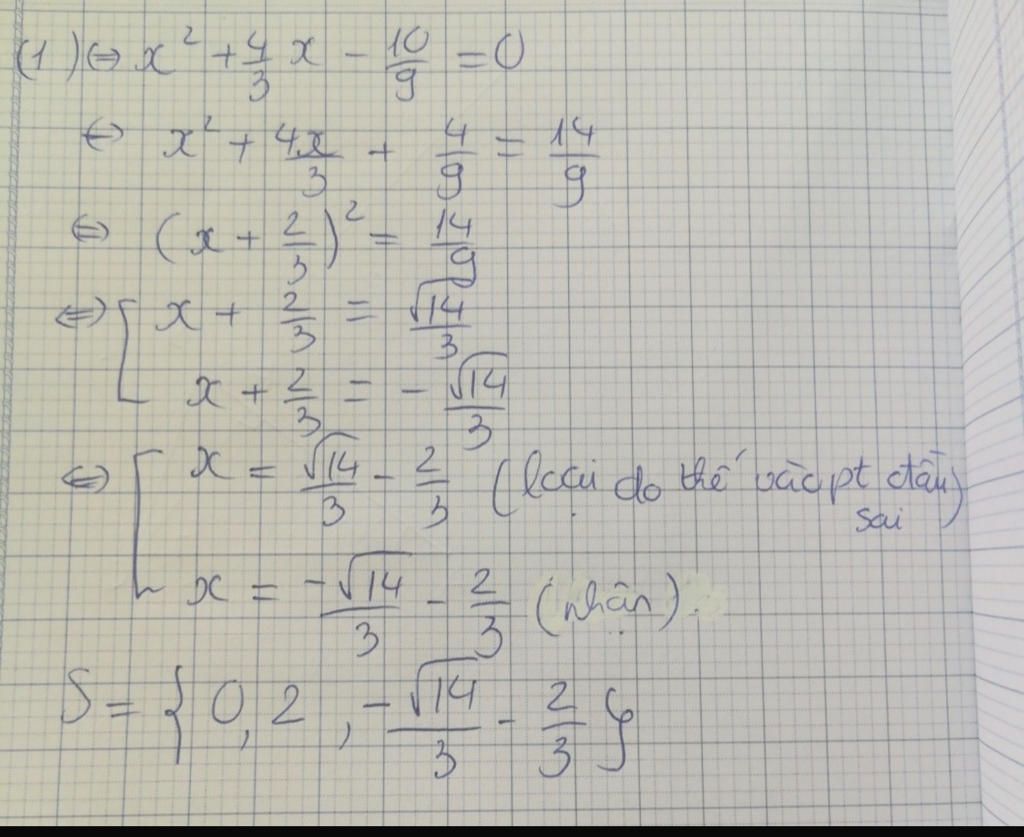 (1) ⇔ x² + 4/3 x - 10/9 = 0
⇔ x² + 4x/3 + 4/9 = 14/9
⇔ (x + 2/3)² = 14/9
⇔ [ x + 2/3 = √14/3
x + 2/3 = - √14/3
⇔ [ x = √14/3 - 2/3 (loại do thế vào pt đầu
sai)
x = -√14/3 - 2/3 (nhận).
S = { 0, 2 , -√14/3 - 2/3 }